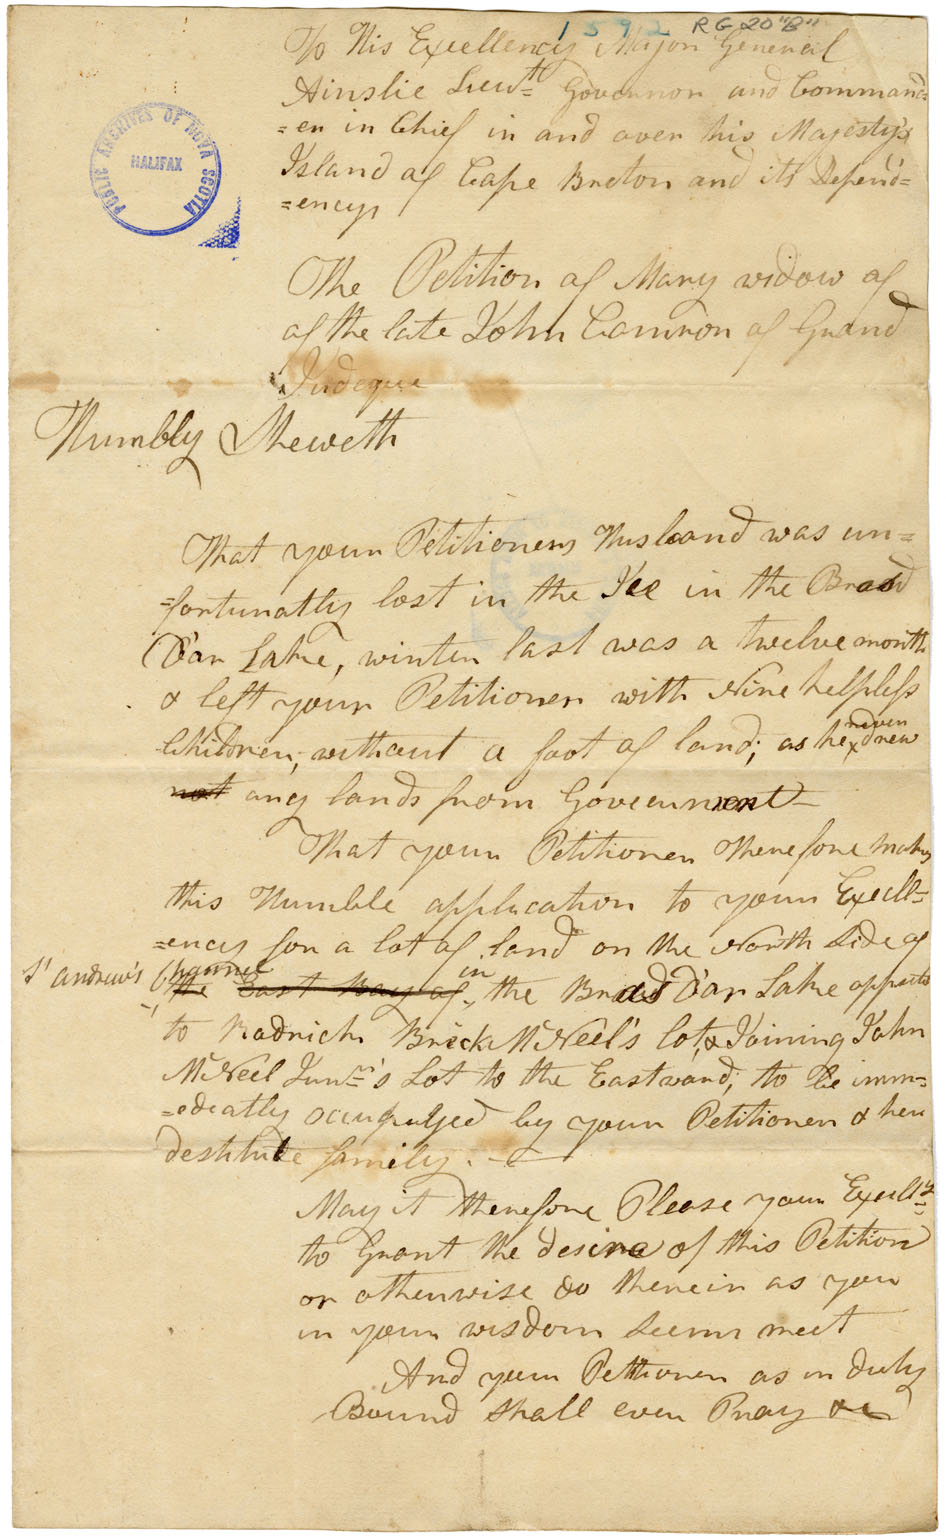 1592 RG 20 "B"
To His Excellency Major General
Ainslie Lieut Governor and Command=
=er in Chief in and over his Majesty's
Island of Cape Breton and its Depend=
=encys
PUBLIC ARCHIVES OF NOVA SCOTIA
HALIFAX
The Petition of Mary widow of
of the late John Camron of Grand
Judeque
Humbly Sheweth
That your Petitioners Husband was un=
=fortunatly lost in the Ice in the Brasd
D'ar Lake, winter last was a twelve month
& left your Petitioner with Nine helpless
Children, without a foot of land; as he never drew
not any lands from Goveernment
That your Petitioner Therefore makes
this Humble application to your Excell=
=ency for a lot of land on the North Side of
St andrew's Channel
the East Bay of in the Brasd D'ar Lake opposite
to Rodrich Brick McNeel's lot, & Joining John
McNeel Junr's Lot to the Eastward; to be imm=
=ediatly occupuyed by your Petitioner & her
destitute family.
May it therefore Please your Excelly
to Grant the desire of this Petition
or otherwise do therein as you
in your wisdom seems meet
And your Petitioner as in duty
Bound shall ever Pray &c